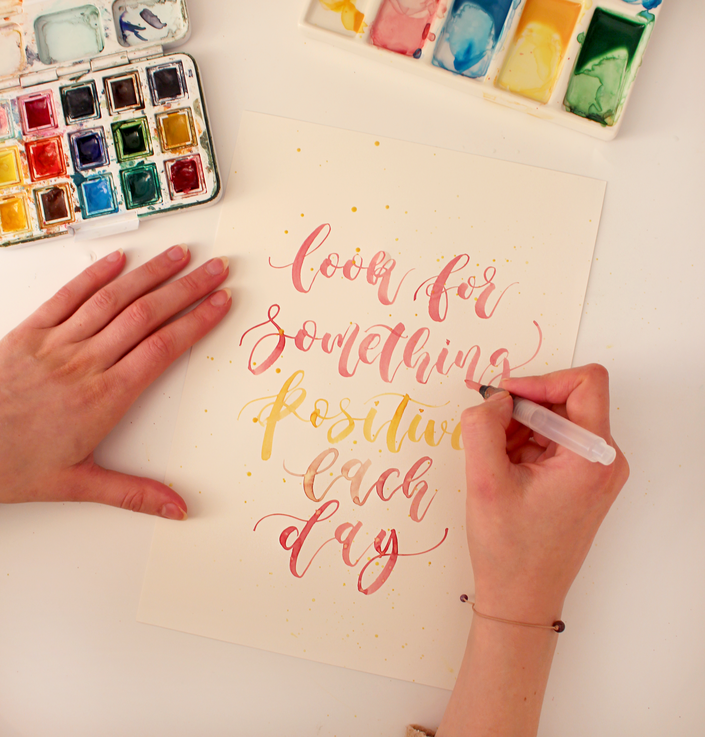 look for
something
positive
each
day